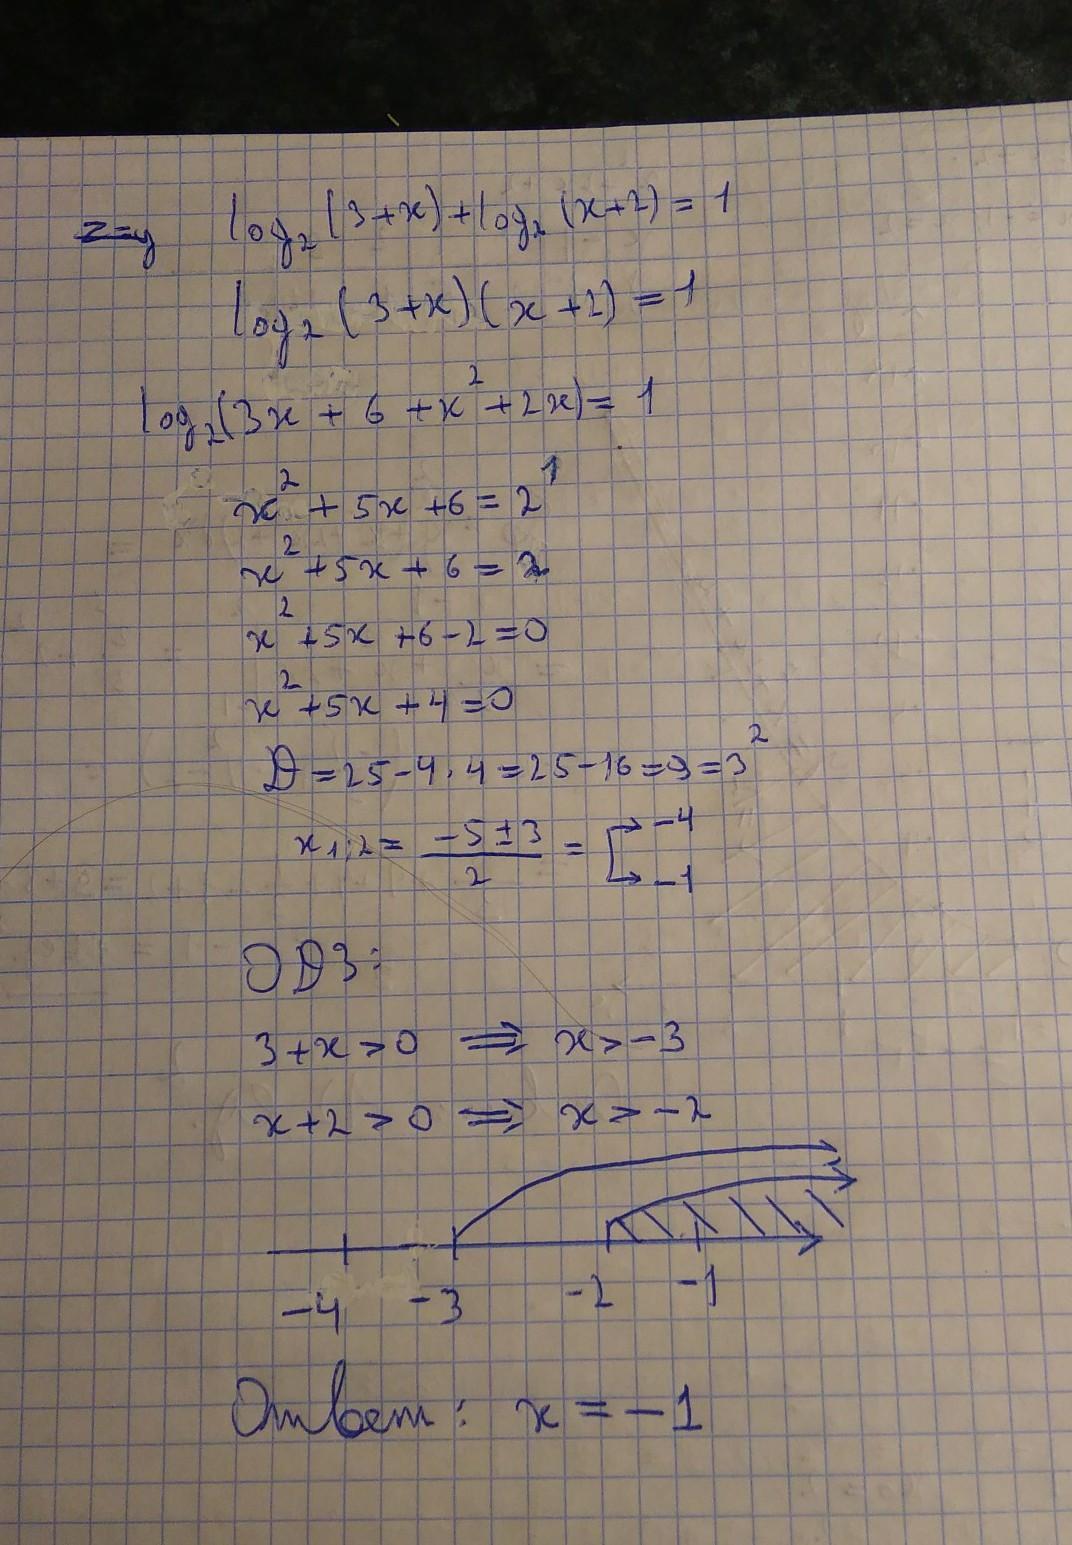 z=y log₂(3+x)+log₂(x+2)=1
log₂(3+x)(x+2)=1
log₂(3x+6+x²+2x)=1
x²+5x+6=2¹
x²+5x+6=2
x²+5x+6-2=0
x²+5x+4=0
D=25-4·4=25-16=9=3²
x₁;₂= (-5±3)/2 = [→-4 →-1
ОДЗ:
3+x>0 ⟹ x>-3
x+2>0 ⟹ x>-2
-4 -3 -2 -1
Ответ: x=-1